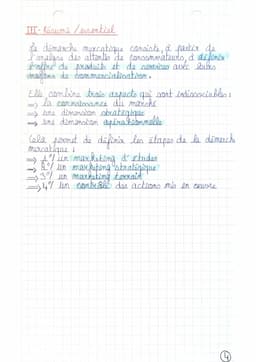 III - Résumé / essentiel
La démarche mercatique consiste, à partir de
l'analyse des attentes de consommateurs, à définir
l'offre de produits et de services avec leurs
moyens de commercialisation.
Elle combine trois aspects qui sont indissociables :
⇒ la connaissance du marché
⇒ une dimension stratégique
⇒ une dimension opérationnelle
Cela permet de définir les étapes de la démarche
mercatique :
⇒ 1°/ un marketing d'études
⇒ 2°/ un marketing stratégique
⇒ 3°/ un marketing terrain
⇒ 4°/ un contrôle des actions mis en oeuvre
4